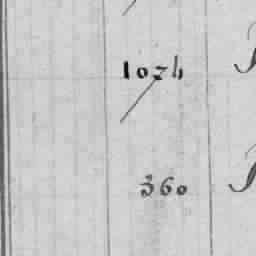 1024
360